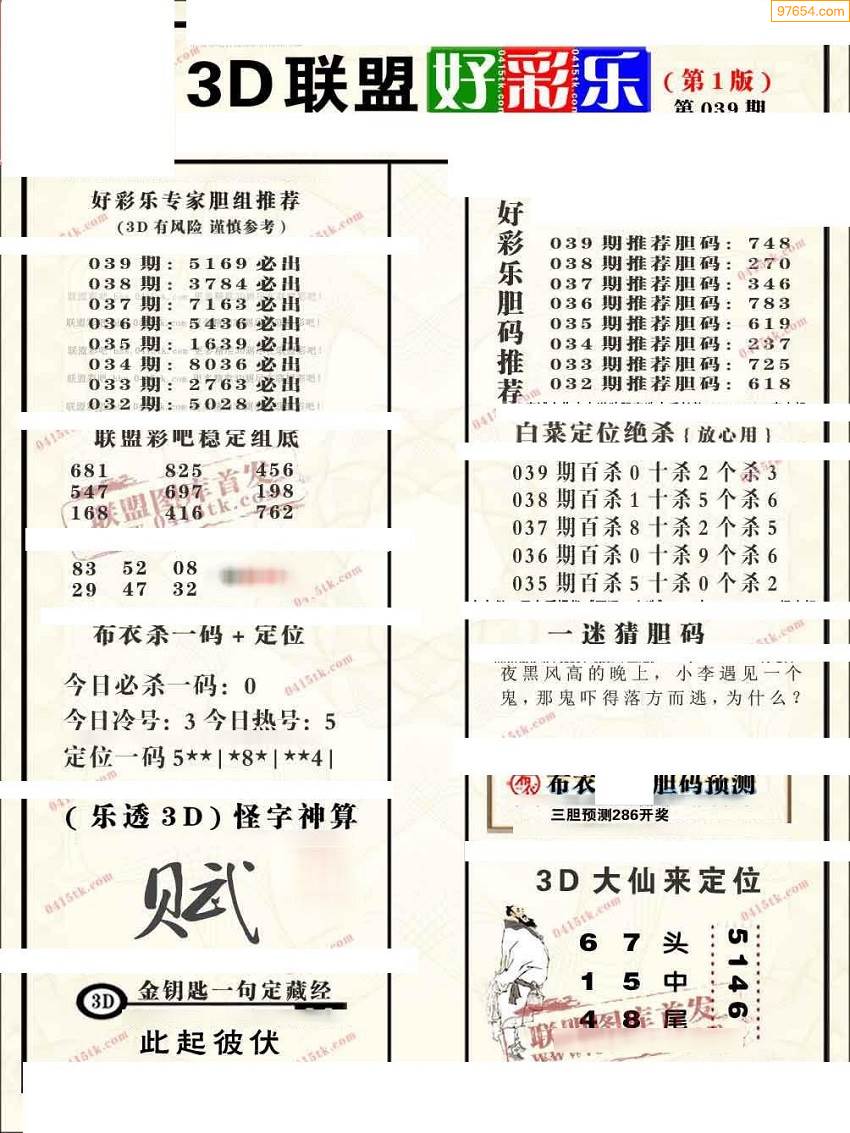 97654.com
3D联盟好彩乐
(第1版)
第039期
好彩乐专家胆组推荐
(3D有风险 谨慎参考)
039期: 5169必出
038期: 3784必出
037期: 7163必出
036期: 5436必出
035期: 1639必出
034期: 8036必出
033期: 2763必出
032期: 5028必出
联盟彩吧稳定组底
681 825 456
547 697 198
168 416 762
83 52 08
29 47 32
布衣杀一码+定位
今日必杀一码: 0
今日冷号: 3 今日热号: 5
定位一码 5**|*8*|**4|
(乐透3D)怪字神算
赋
3D 金钥匙一句定藏经
此起彼伏
好彩乐胆码推荐
039期推荐胆码: 748
038期推荐胆码: 270
037期推荐胆码: 346
036期推荐胆码: 783
035期推荐胆码: 619
034期推荐胆码: 237
033期推荐胆码: 725
032期推荐胆码: 618
白菜定位绝杀{放心用}
039期百杀0十杀2个杀3
038期百杀1十杀5个杀6
037期百杀8十杀2个杀5
036期百杀0十杀9个杀6
035期百杀5十杀0个杀2
一迷猜胆码
夜黑风高的晚上,小李遇见一个
鬼,那鬼吓得落方而逃,为什么?
布衣 胆码预测
三胆预测286开奖
3D大仙来定位
6 7 头
1 5 中
4 8 尾
5146
联盟图库首发
0415tk.com